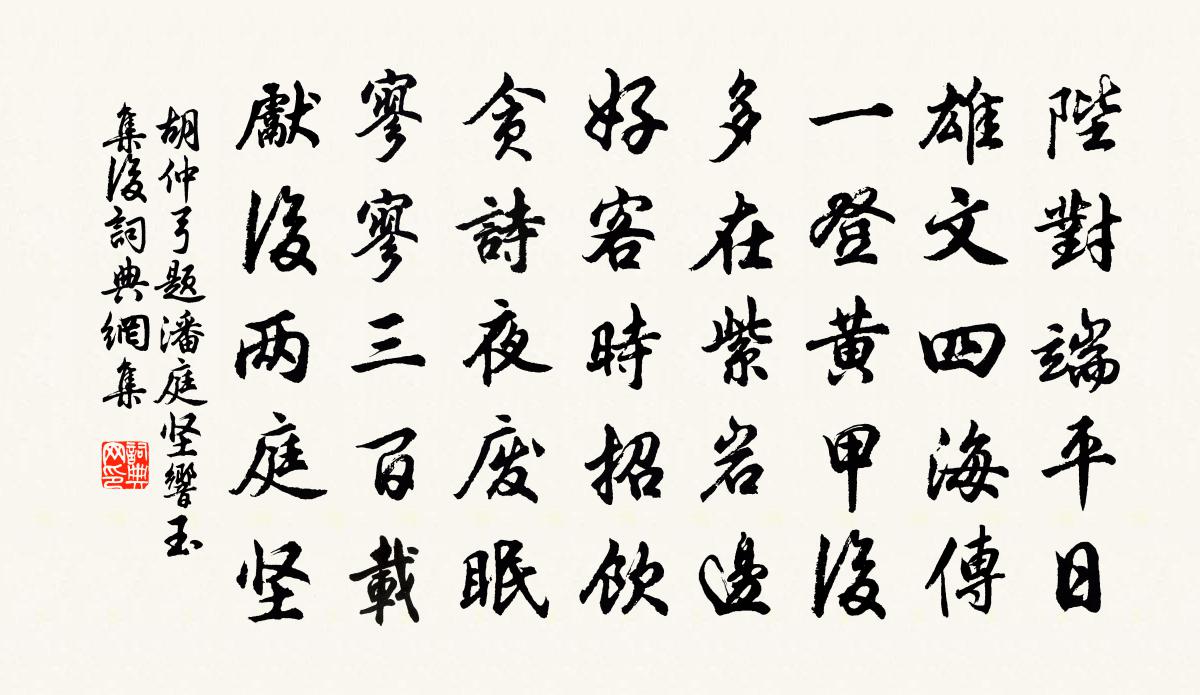 陛對端平日
雄文四海傳
一登黃甲後
多在紫岩邊
好客時招飲
貪詩夜廢眠
寥寥三百載
獻後兩庭坚
胡仲弓題潘庭坚響玉
集後詞典網集
詞典網印